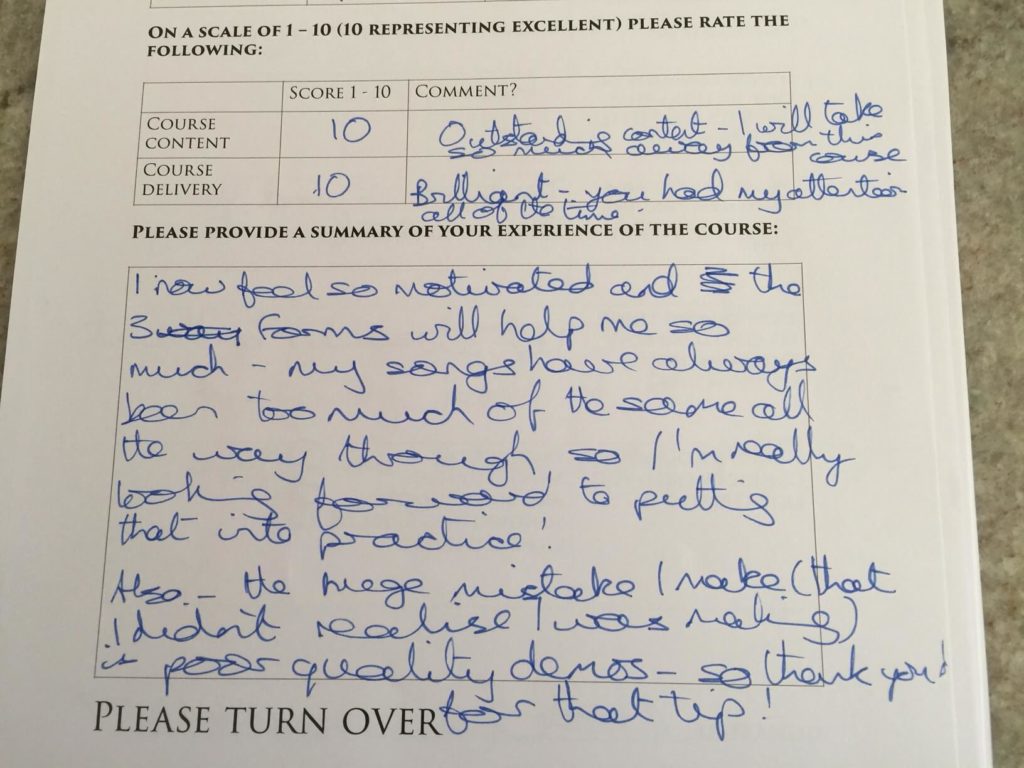 ON A SCALE OF 1 – 10 (10 REPRESENTING EXCELLENT) PLEASE RATE THE
FOLLOWING:
SCORE 1 - 10 COMMENT?
COURSE CONTENT 10 Outstanding content - I will take
so much away from this course
COURSE DELIVERY 10 Brilliant - you had my attention
all of the time.
PLEASE PROVIDE A SUMMARY OF YOUR EXPERIENCE OF THE COURSE:
I now feel so motivated and the
3 Forms will help me so
much - my songs have always
been too much of the same all
the way through, so I'm really
looking forward to putting
that into practice!
Also - the huge mistake I make (that
I didn't realise I was making)
is poor quality demos - so thank you!
for that tip!
PLEASE TURN OVER